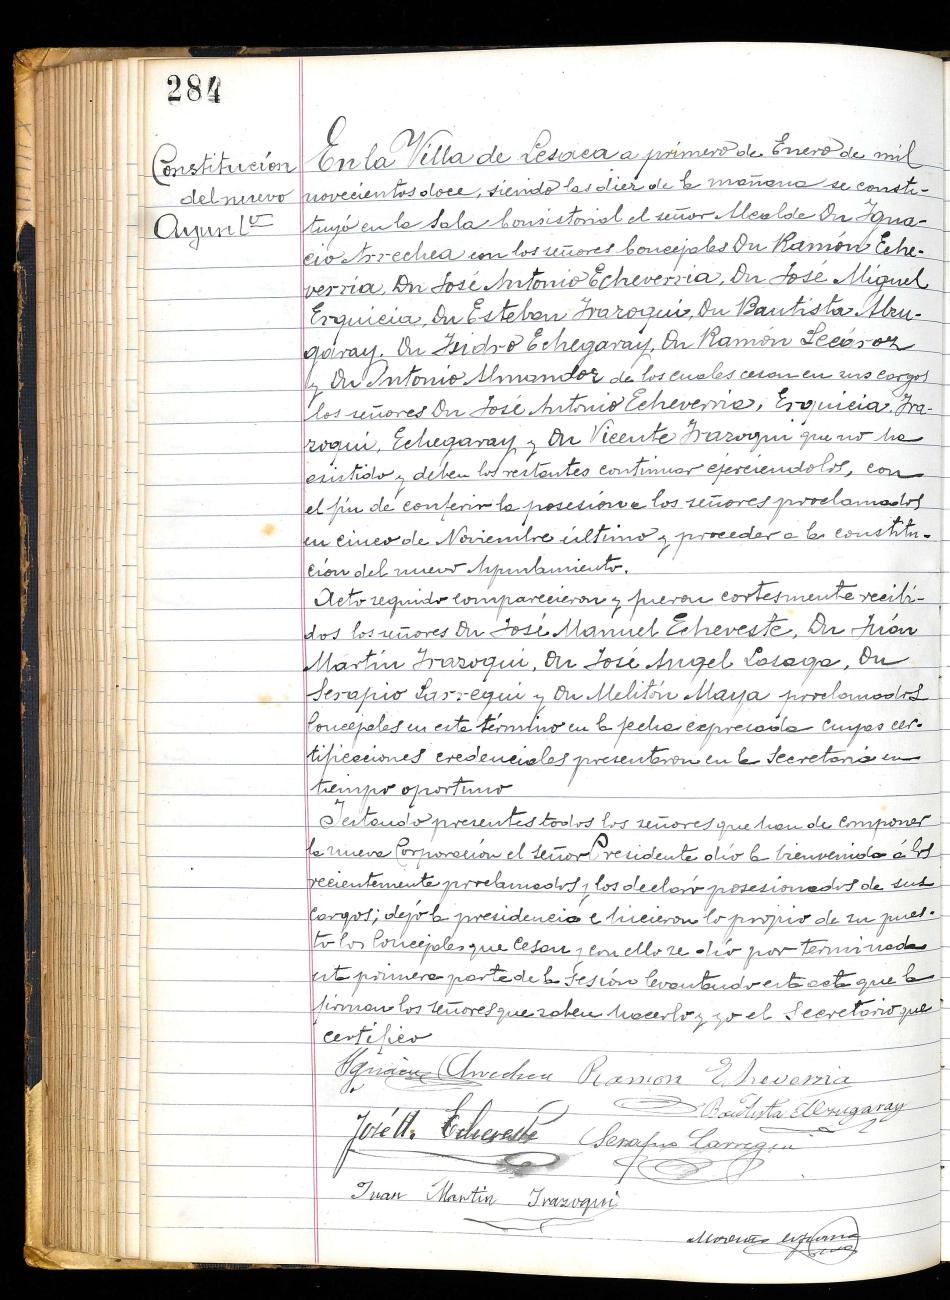 284
Constitución
del nuevo
Ayunt
En la Villa de Lesaca a primero de Enero de mil
novecientos doce, siendo las diez de la mañana se consti-
tuyó en la Sala Consistorial el señor Alcalde Dn Igna-
cio Arrechea con los señores Concejales Dn Ramón Eche-
verria, Dn José Antonio Echeverria, Dn José Miguel
Erquicia, Dn Esteban Irazoqui, Dn Bautista Alzu-
garay, Dn Isidro Echegaray, Dn Ramón Lecároz
y Dn Antonio Almandoz de los cuales cesan en sus cargos
los señores Dn José Antonio Echeverria, Erquicia, Ira-
zoqui, Echegaray y Dn Vicente Irazoqui que no ha
asistido y deben los restantes continuar ejerciendolos, con
el fin de conferir la posesión a los señores proclamados
en cinco de Noviembre último y proceder a la constitu-
ción del nuevo Ayuntamiento.
Acto seguido comparecieron y fueron cortesmente recibi-
dos los señores Dn José Manuel Echeveste, Dn Juán
Martín Irazoqui, Dn José Angel Lasaga, Dn
Serapio Larregui y Dn Melitón Maya proclamados
Concejales en este término en la fecha expresada cuyas cer-
tificaciones credenciales presentaron en la Secretaria en
tiempo oportuno
Y estando presentes todos los señores que han de componer
la nueva Corporación el señor Presidente dió la bienvenida á los
recientemente proclamados y los declaró posesionados de sus
cargos; dejó la presidencia é hicieron lo propio de su pues-
to los Concejales que cesan y con ello se dió por terminada
esta primera parte de la Sesión levantando esta acta que la
firman los señores que saben hacerlo y yo el Secretario que
certifico
Ignacio Arrechea Ramon Echeverria
Bautista Alzugaray
José M. Echeveste Serapio Larregui
Juan Martin Irazoqui